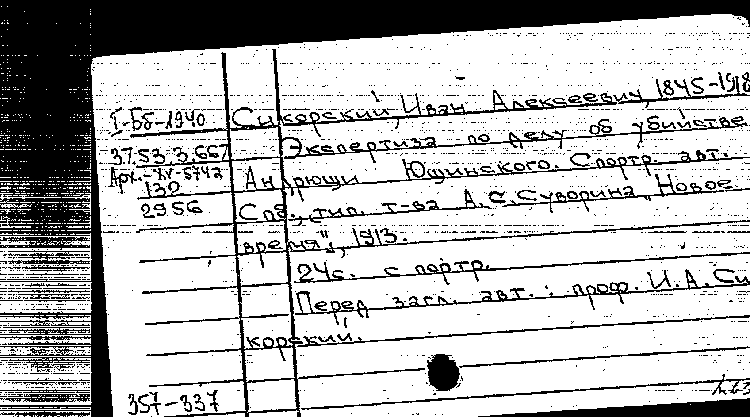 I-Бб-1940
37.53.3.667
Арх.-XV-5742
132
2956
Сикорский, Иван Алексеевич, 1845-1918
Экспертиза по делу об убийстве
Андрюши Ющинского. С портр. авт.
Спб., тип. т-ва А.С.Суворина „Новое
время", 1913.
24с. с портр.
Перед загл. авт.: проф. И.А.Си
корский.
357-337